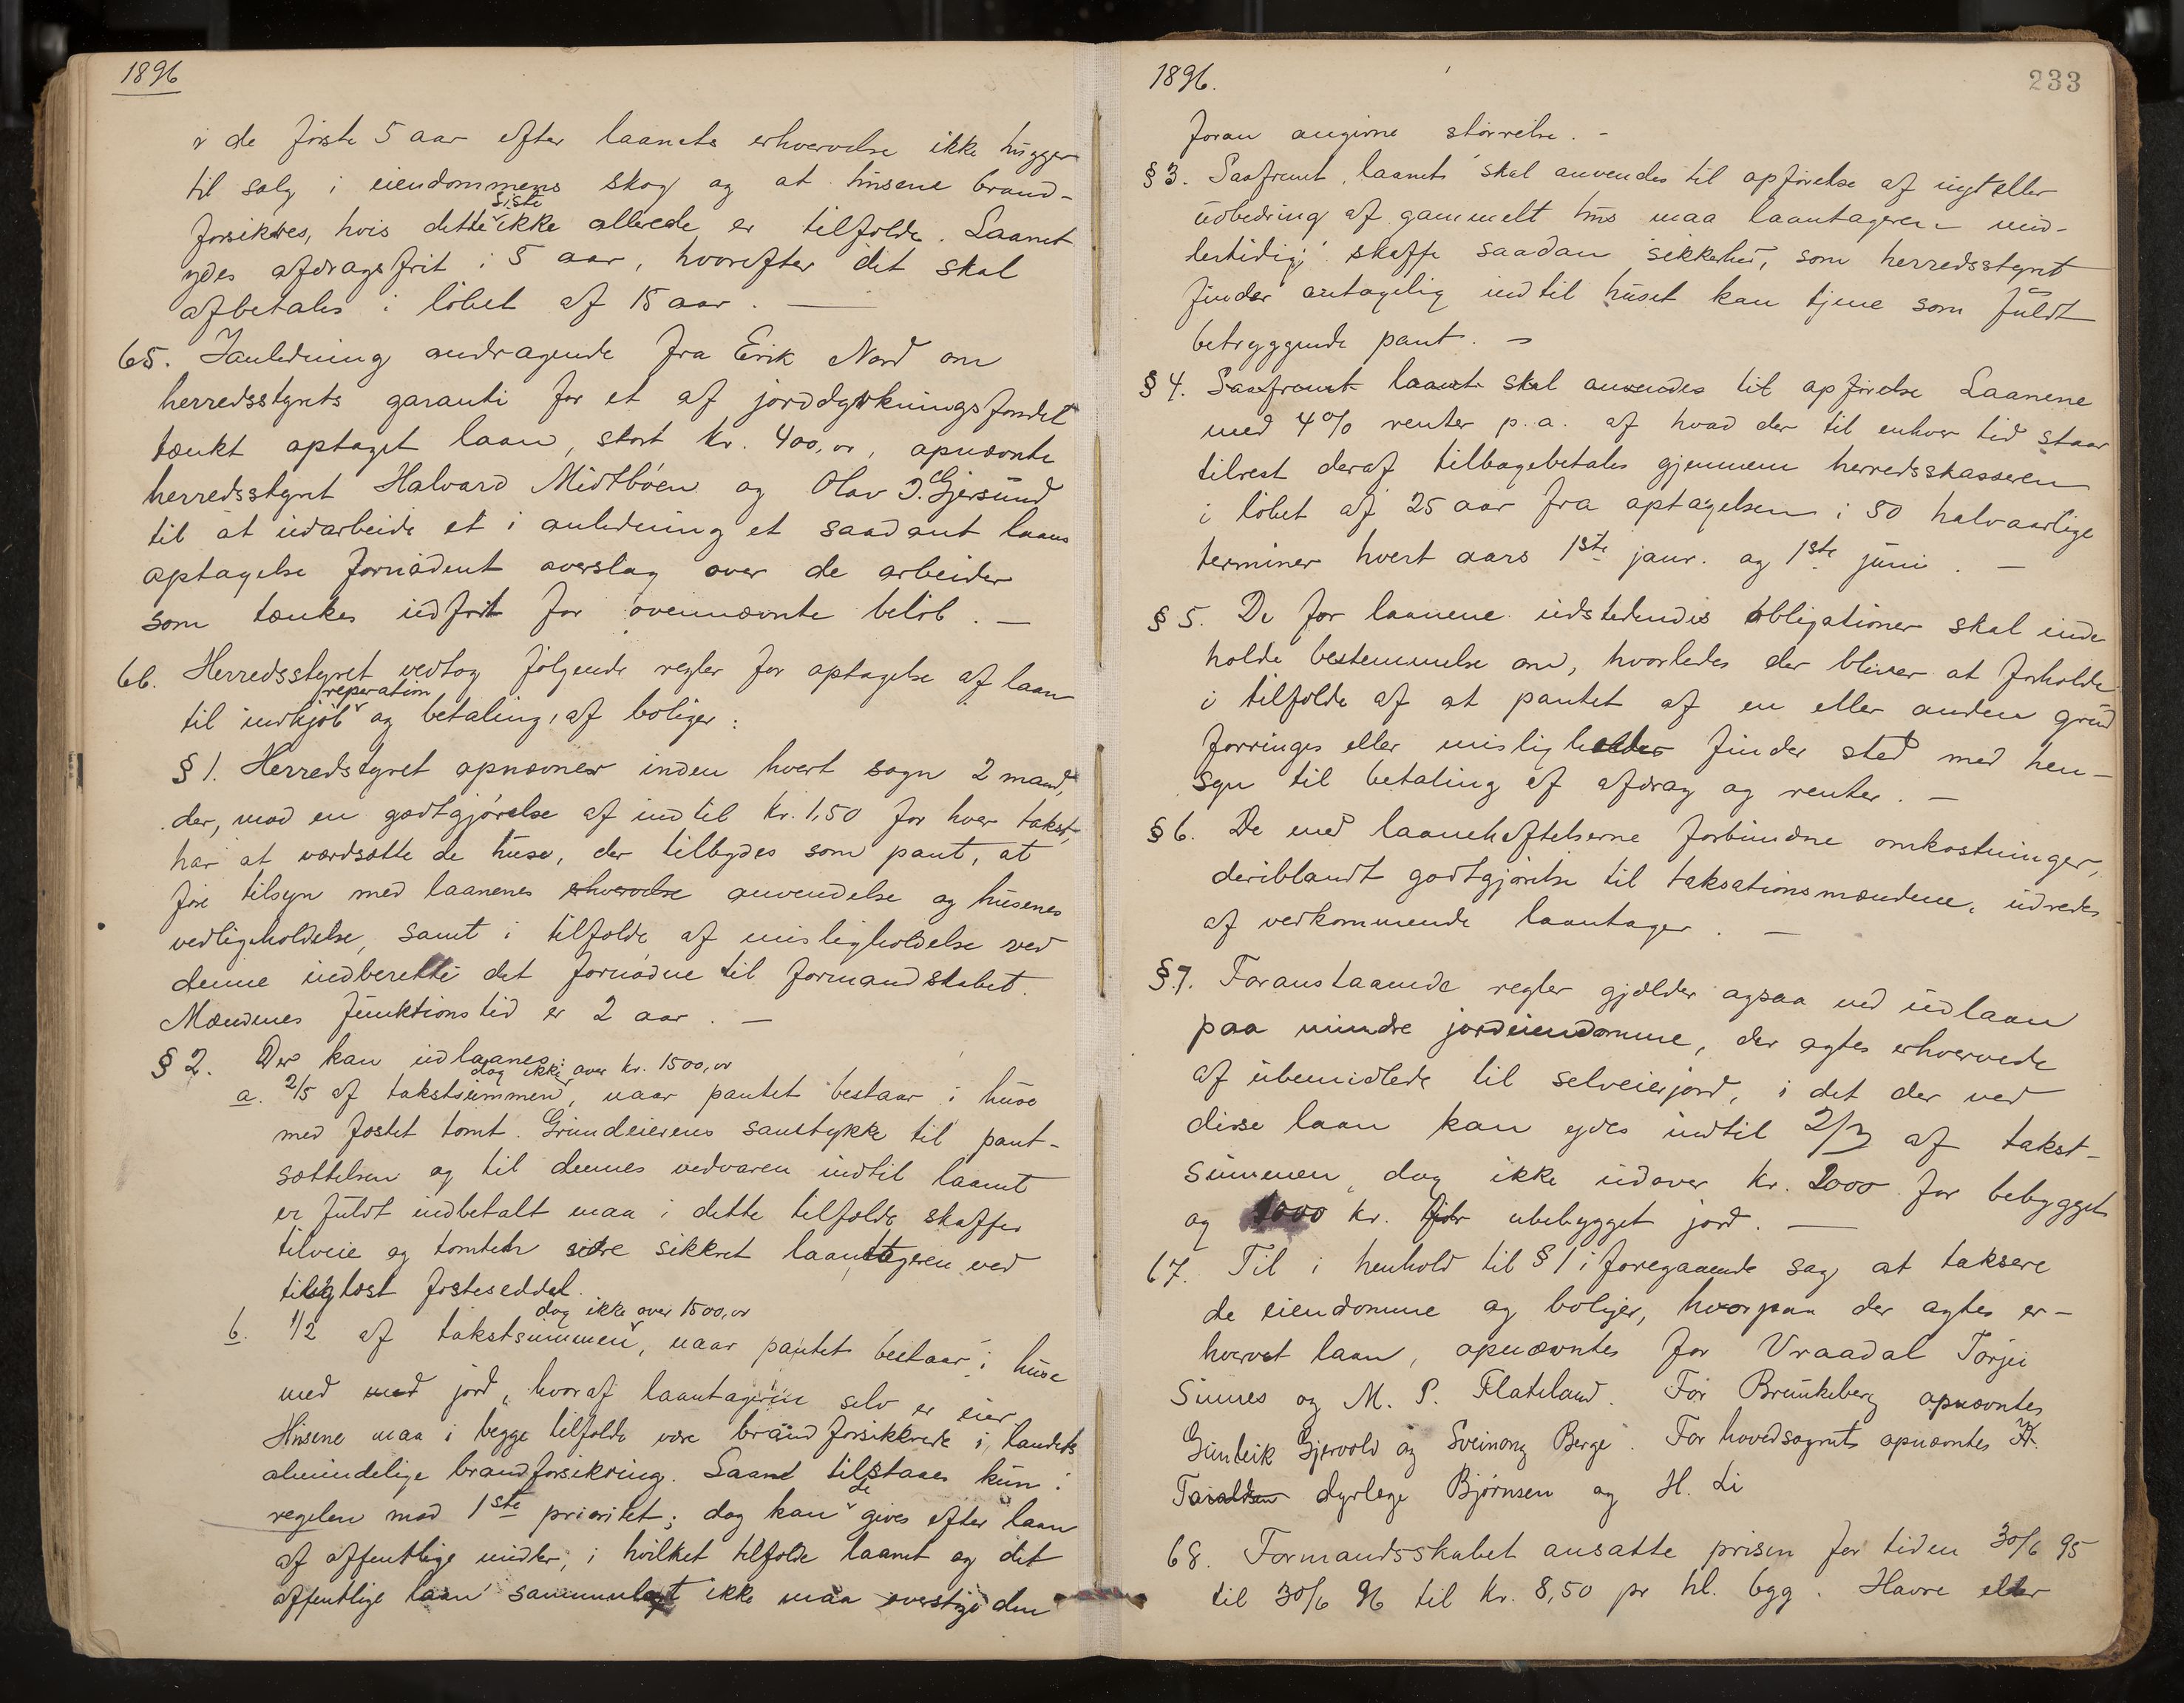 1896
i de første 5 aar efter laanets erhvervelse ikke hugger
til salg i eiendommens skog og at husene brand-
siste
forsikres, hvis dette ikke allerede er tilfælde. Laanet
ydes afdragsfrit i 5 aar, hvorefter det skal
afbetales i løbet af 15 aar. —
65. I anledning andragende fra Erik Nord om
herredsstyrets garanti for et af jorddyrkningsfondet
tænkt optaget laan, stort kr. 400,00, opnævnte
herredsstyret Halvard Midtbøen og Olav J. Gjersund
til at udarbeide et i anledning et saadant laans
optagelse fornødent overslag over de arbeider
som tænkes udført for ovennævnte beløb. —
66. Herredsstyret vedtog følgende regler for optagelse af laan
reperation
til indkjøb og betaling af boliger:
§ 1. Herredstyret opnævner inden hvert sogn 2 mænd,
der, mod en godtgjørelse af indtil kr. 1,50 for hver takst,
har at værdsætte de huse, der tilbydes som pant, at
føre tilsyn med laanenes erhvervelse anvendelse og husenes
vedligeholdelse, samt i tilfælde af misligholdelse ved
denne indberette det fornødne til formandskabet.
Mændenes funktionstid er 2 aar. —
§ 2. Der kan udlaanes:
dog ikke over kr. 1500,00
a. 2/5 af takstsummen, naar pantet bestaar i huse
med fæstet tomt. Grundeierens samtykke til pant-
sættelsen og til dennes vedvaren indtil laanet
er fuldt indbetalt maa i dette tilfælde skaffes
tilveie og tomten være sikkret laantageren ved
tinglæst fæsteseddel.
dog ikke over 1500,00
b. 1/2 af takstsummen, naar pantet bestaar i huse
med med jord, hvoraf laantageren selv er eier.
Husene maa i begge tilfælde være brandforsikkrede i landets
almindelige brandforsikring. Laanet tilstaaes kun i
de
regelen mod 1ste prioritet; dog kan gives efter laan
af offentlige midler, i hvilket tilfælde laanet og det
offentlige laan sammenlagt ikke maa overstige den
1896.
233
foran angivne størrelse. -
§ 3. Saafremt laanet skal anvendes til opførelse af nyt eller
udbedring af gammelt hus maa laantageren mid-
lertidig skaffe saadan sikkerhed, som herredsstyret
finder antagelig indtil huset kan tjene som fuldt
betryggende pant. —
§ 4. Saafremt laanet skal anvendes til opførelse Laanene
med 4% renter p.a. af hvad der til enhver tid staar
tilrest deraf tilbagebetales gjennem herredskasseren
i løbet af 25 aar fra optagelsen i 50 halvaarlige
terminer hvert aars 1ste janr. og 1ste juni. —
§ 5. De for laanene udstedendes obligationer skal inde
holde bestemmelse om, hvorledes der bliver at forholde
i tilfælde af at pantet af en eller anden grund
forringes eller misligholdes finder sted med hen-
syn til betaling af afdrag og renter. —
§ 6. De med laanehæftelserne forbundne omkostninger,
deriblandt godtgjørelse til taksationsmændene, udredes
af vedkommende laantager. —
§ 7. Foranstaaende regler gjælder ogsaa ved udlaan
paa mindre jordeiendomme, der agtes erhvervede
af ubemidlede til selveierjord, i det der ved
disse laan kan ydes indtil 2/3 af takst-
summen, dog ikke udover kr. 2000 for bebygget
og 1000 kr. for ubebygget jord. —
67. Til i henhold til § 1 i foregaaende sag at taksere
de eiendomme og boliger, hvorpaa der agtes er-
hvervet laan, opnævntes for Vraadal Torjei
Sinnes og M. P. Flateland. For Brunkeberg opnævntes
Gunleik Gjervold og Sveinong Berge. For hovedsognet opnævntes
Taraldsen dyrlæge Bjørnsen og H. Li
68. Formandsskabet ansatte prisen for tiden 30/6 95
til 30/6 96 til kr. 8,50 pr hl. byg. Havre eller